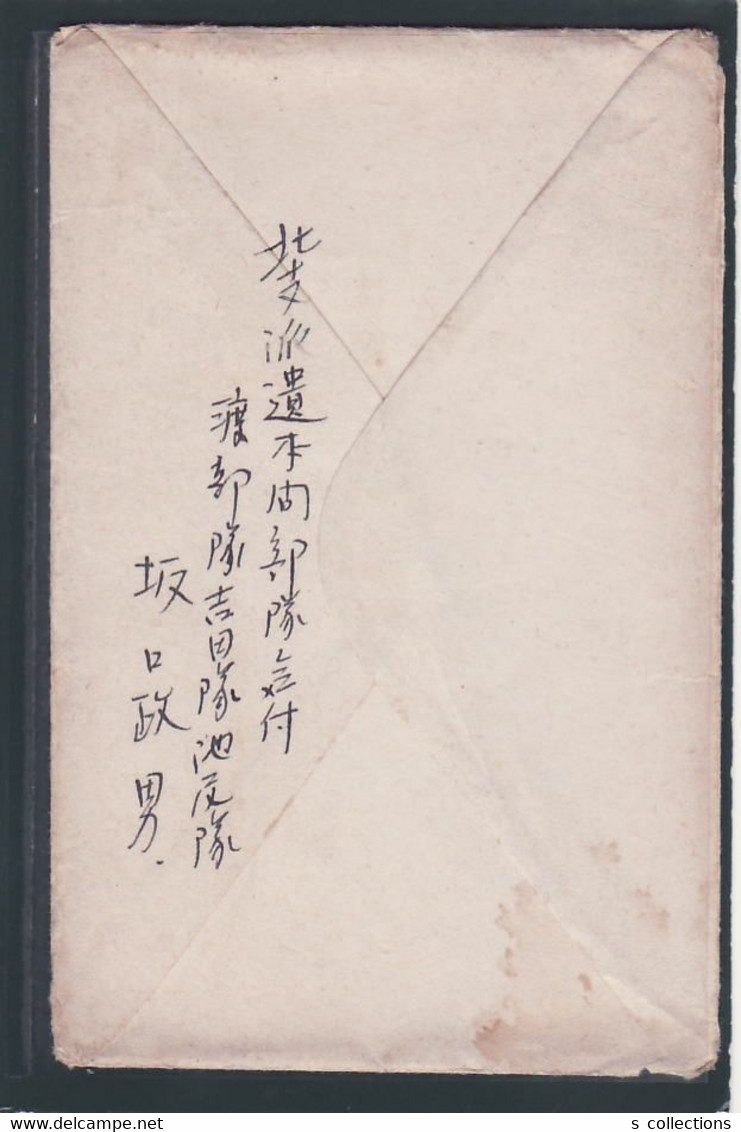 北支派遣本間部隊気付
渡部隊吉田隊池尻隊
坂口政男.
s collections